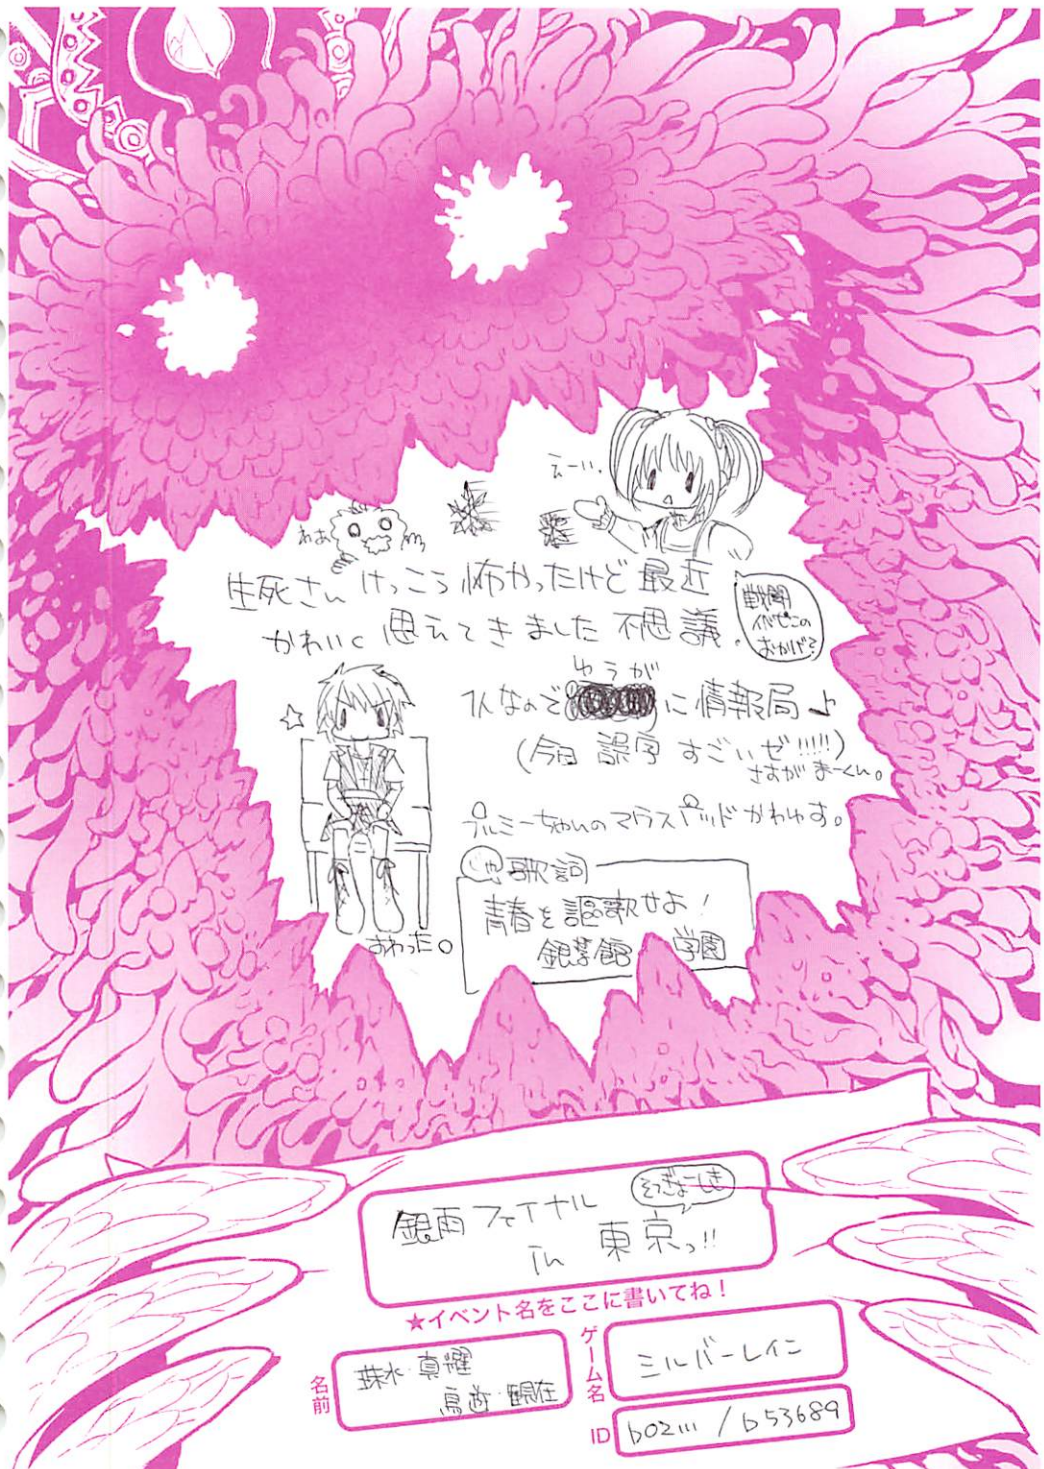 えーい。
わぁ
生死さん けっこう怖かったけど 最近
かわいく 思えてきました 不思議。
戦闘
イベピンの
おかげ?
ゆうが
に情報局♪
(今日 誤字 すごいゼ!!!!!)
さすが まーくん。
プルミーちゃんのマウスパッドかわゆす。
☆
すわった。
歌詞
青春を謳歌せよ!
銀誓館 学園
銀雨ファイナル
そつぎょーしき
in 東京っ!!
★イベント名をここに書いてね!
名前
珠水 真曜
ゲーム名
シルバーレイン
ID
b02111 / b53689